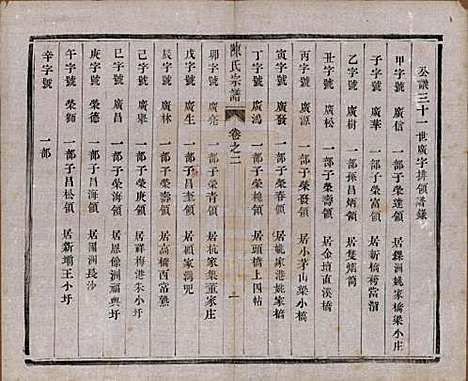 公議三十一世廣字排領譜錄
甲字號 廣信 一部子榮達領 居 洲姚家橋梁小庄
子字號 廣華 一部子榮富領 居新橋 當灣
乙字號 廣樹 一部孫昌炳領 居隻
丑字號 廣松 一部子榮壽領 居金壇直溪橋
丙字號 廣源 一部子榮發領 居小茅山梁小橋
寅字號 廣發 一部子榮春領 居姚家港姚家橋
丁字號 廣鴻 一部子榮 領 居頭橋上四帖
卯字號 廣亮 一部子榮青領 居杭家集董家庄
陳氏宗譜 卷之二 一
戊字號 廣生 一部子昌奎領 居顧家溝兕
辰字號 廣林 一部子榮 領 居高橋西常熟
己字號 廣東 一部子榮庚領 居祥梅港朱小圩
巳字號 廣昌 一部子榮湖領 居恩餘洲福興圩
庚字號 榮德 一部子昌松領 居團洲長沙
午字號 榮鄉 一部子昌海領 居新埧王小圩
辛字號 一部